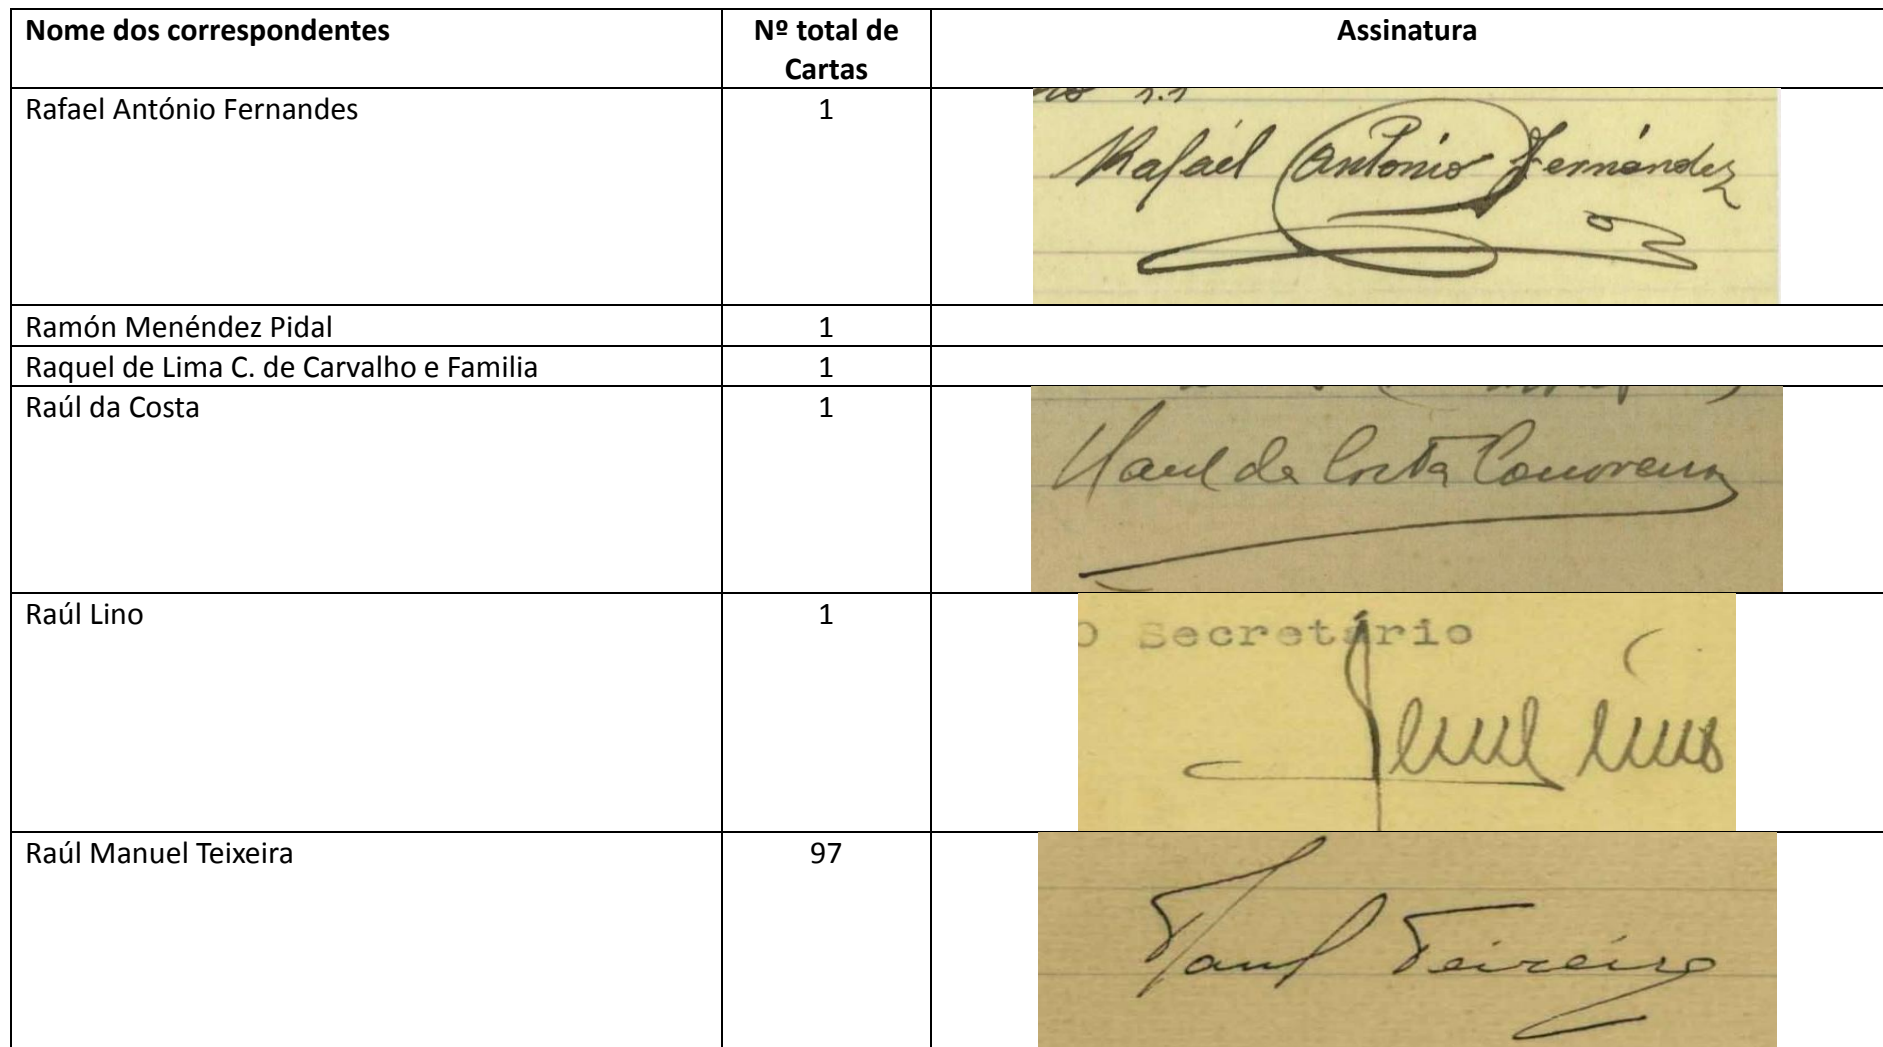 Nome dos correspondentes
Nº total de
Cartas
Assinatura
Rafael António Fernandes
1
Rafael Antonio Fernández
Ramón Menéndez Pidal
1
Raquel de Lima C. de Carvalho e Familia
1
Raúl da Costa
1
Raul da Costa
Raúl Lino
1
O Secretário
Raul Lino
Raúl Manuel Teixeira
97
Raul Teixeira